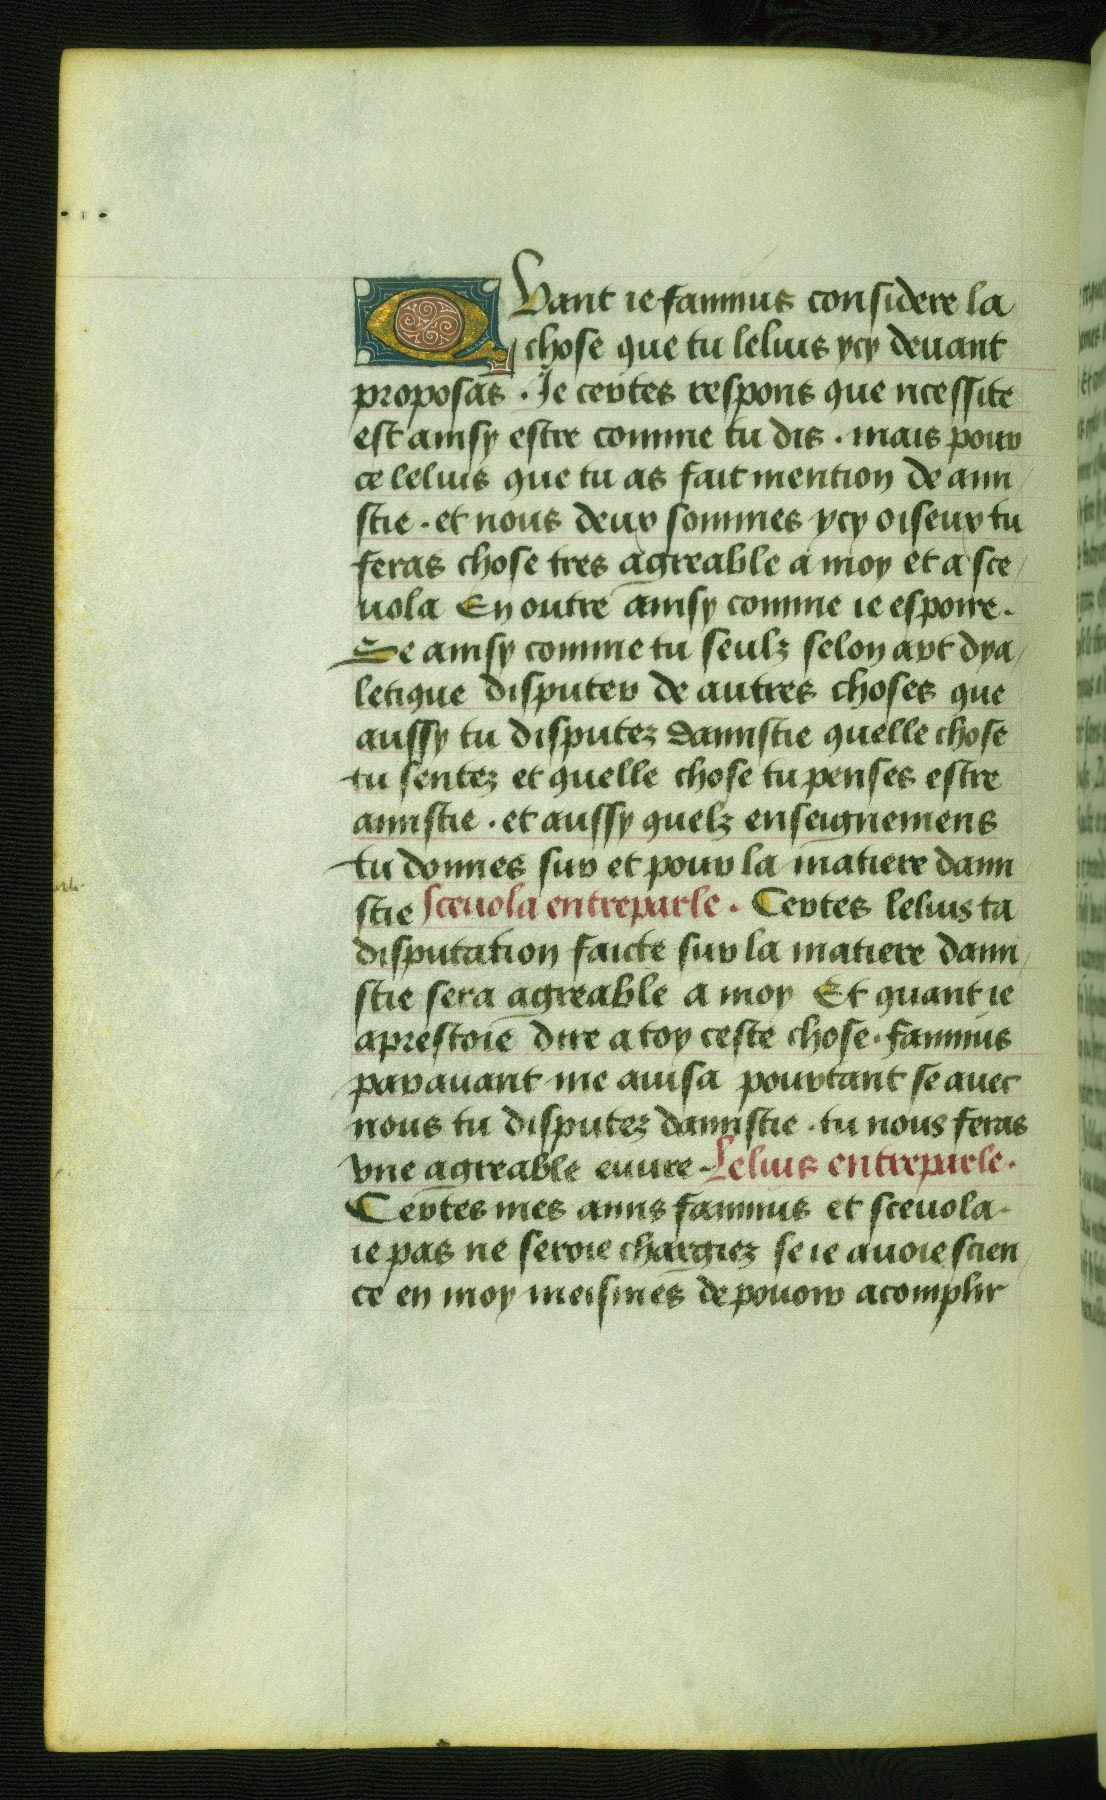 Quant ie fannius considere la
chose que tu lelius ycy deuant
proposas . Je certes respons que ncessite
est ainsy estre comme tu dis . mais pour
ce lelius que tu as fait mention de ami
stie . et nous deux sommes ycy oiseux tu
feras chose tres agreable a moy et a sce
uola En outre ainsy comme ie espoire .
Se ainsy comme tu seulz selon art dya
letique disputer de autres choses que
aussy tu disputez damistie quelle chose
tu sentez et quelle chose tu penses estre
amistie . et aussy quelz enseignemens
tu donnes sur et pour la matiere dami
stie sceuola entreparle . Certes lelius ta
disputation faicte sur la matiere dami
stie sera agreable a moy Et quant ie
aprestoie dire a toy ceste chose . fannius
par auant me auisa pourtant se auec
nous tu disputez damistie . tu nous feras
vne agreable euure . Lelius entreparle .
Certes mes amis fannius et sceuola .
ie pas ne seroie chargiez se ie auoie scien
ce en moy meismes de pouoir acomplir